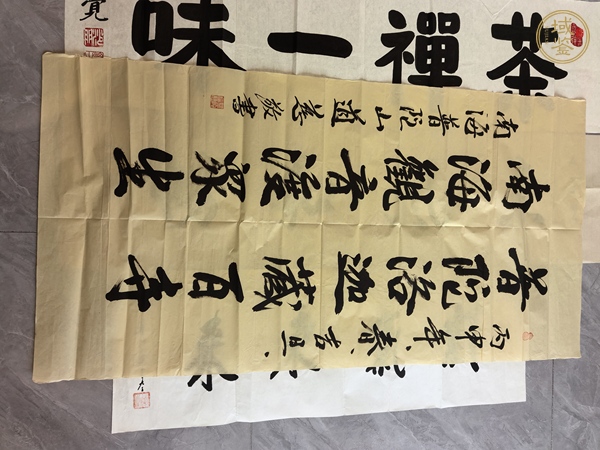 丙申年春吉旦
普陀洛迦藏百寺
南海觀音渡眾生
南海普陀山道慈敬書
茶禪一味
域鉴